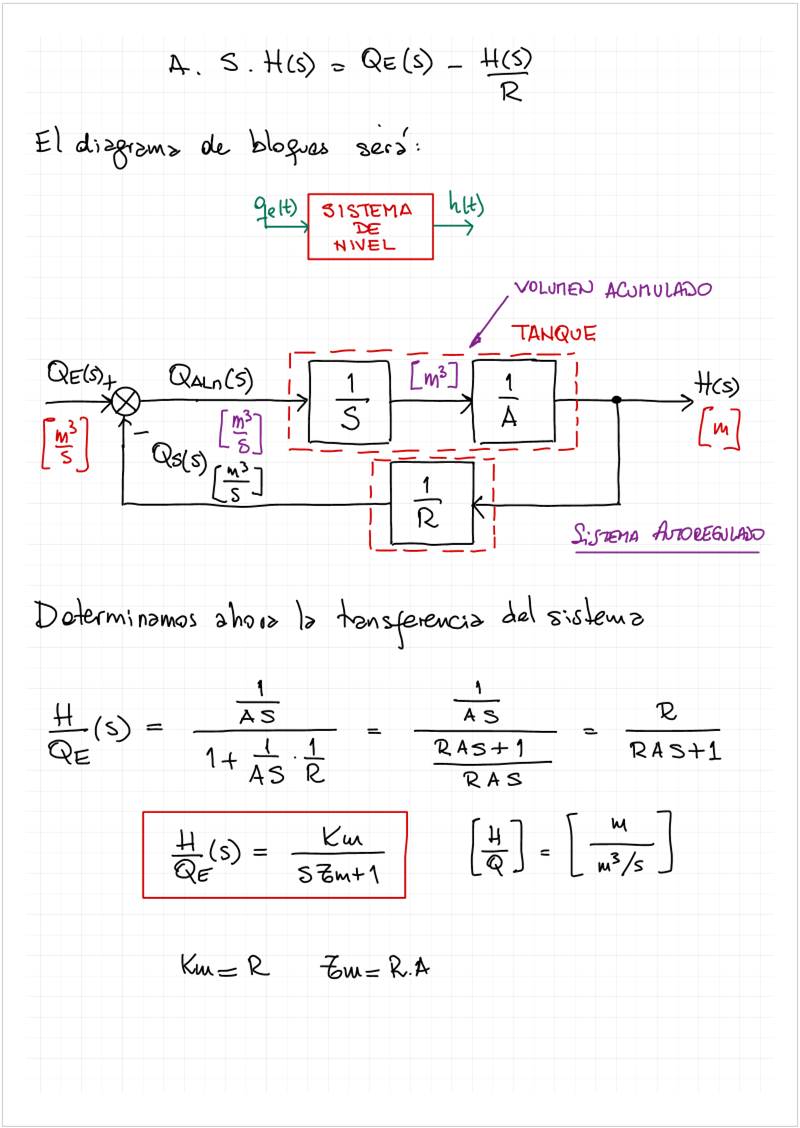 A . S . H(s) = QE(s) – H(s)/R
El diagrama de bloques será:
qe(t) SISTEMA DE NIVEL h(t)
VOLUMEN ACUMULADO
TANQUE
QE(s) + QALM(s) 1/S [m³] 1/A H(s)
[m³/s] – [m³/s] [m]
QS(s) [m³/s] 1/R
SISTEMA AUTOREGULADO
Determinamos ahora la transferencia del sistema
H/QE (s) = (1/AS)/(1 + 1/AS · 1/R) = (1/AS)/((RAS+1)/RAS) = R/(RAS+1)
H/QE (s) = Km/(Sτm+1) [H/Q] = [m/(m³/s)]
Km = R τm = R.A